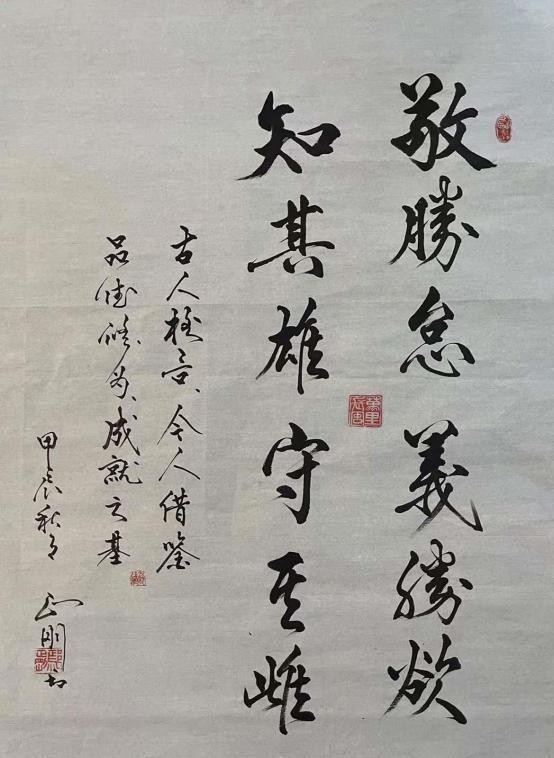 敬勝怠義勝欲
知其雄守其雌
古人格言、今人借鑒
品德修为、成就之基
甲辰秋月
正刚书